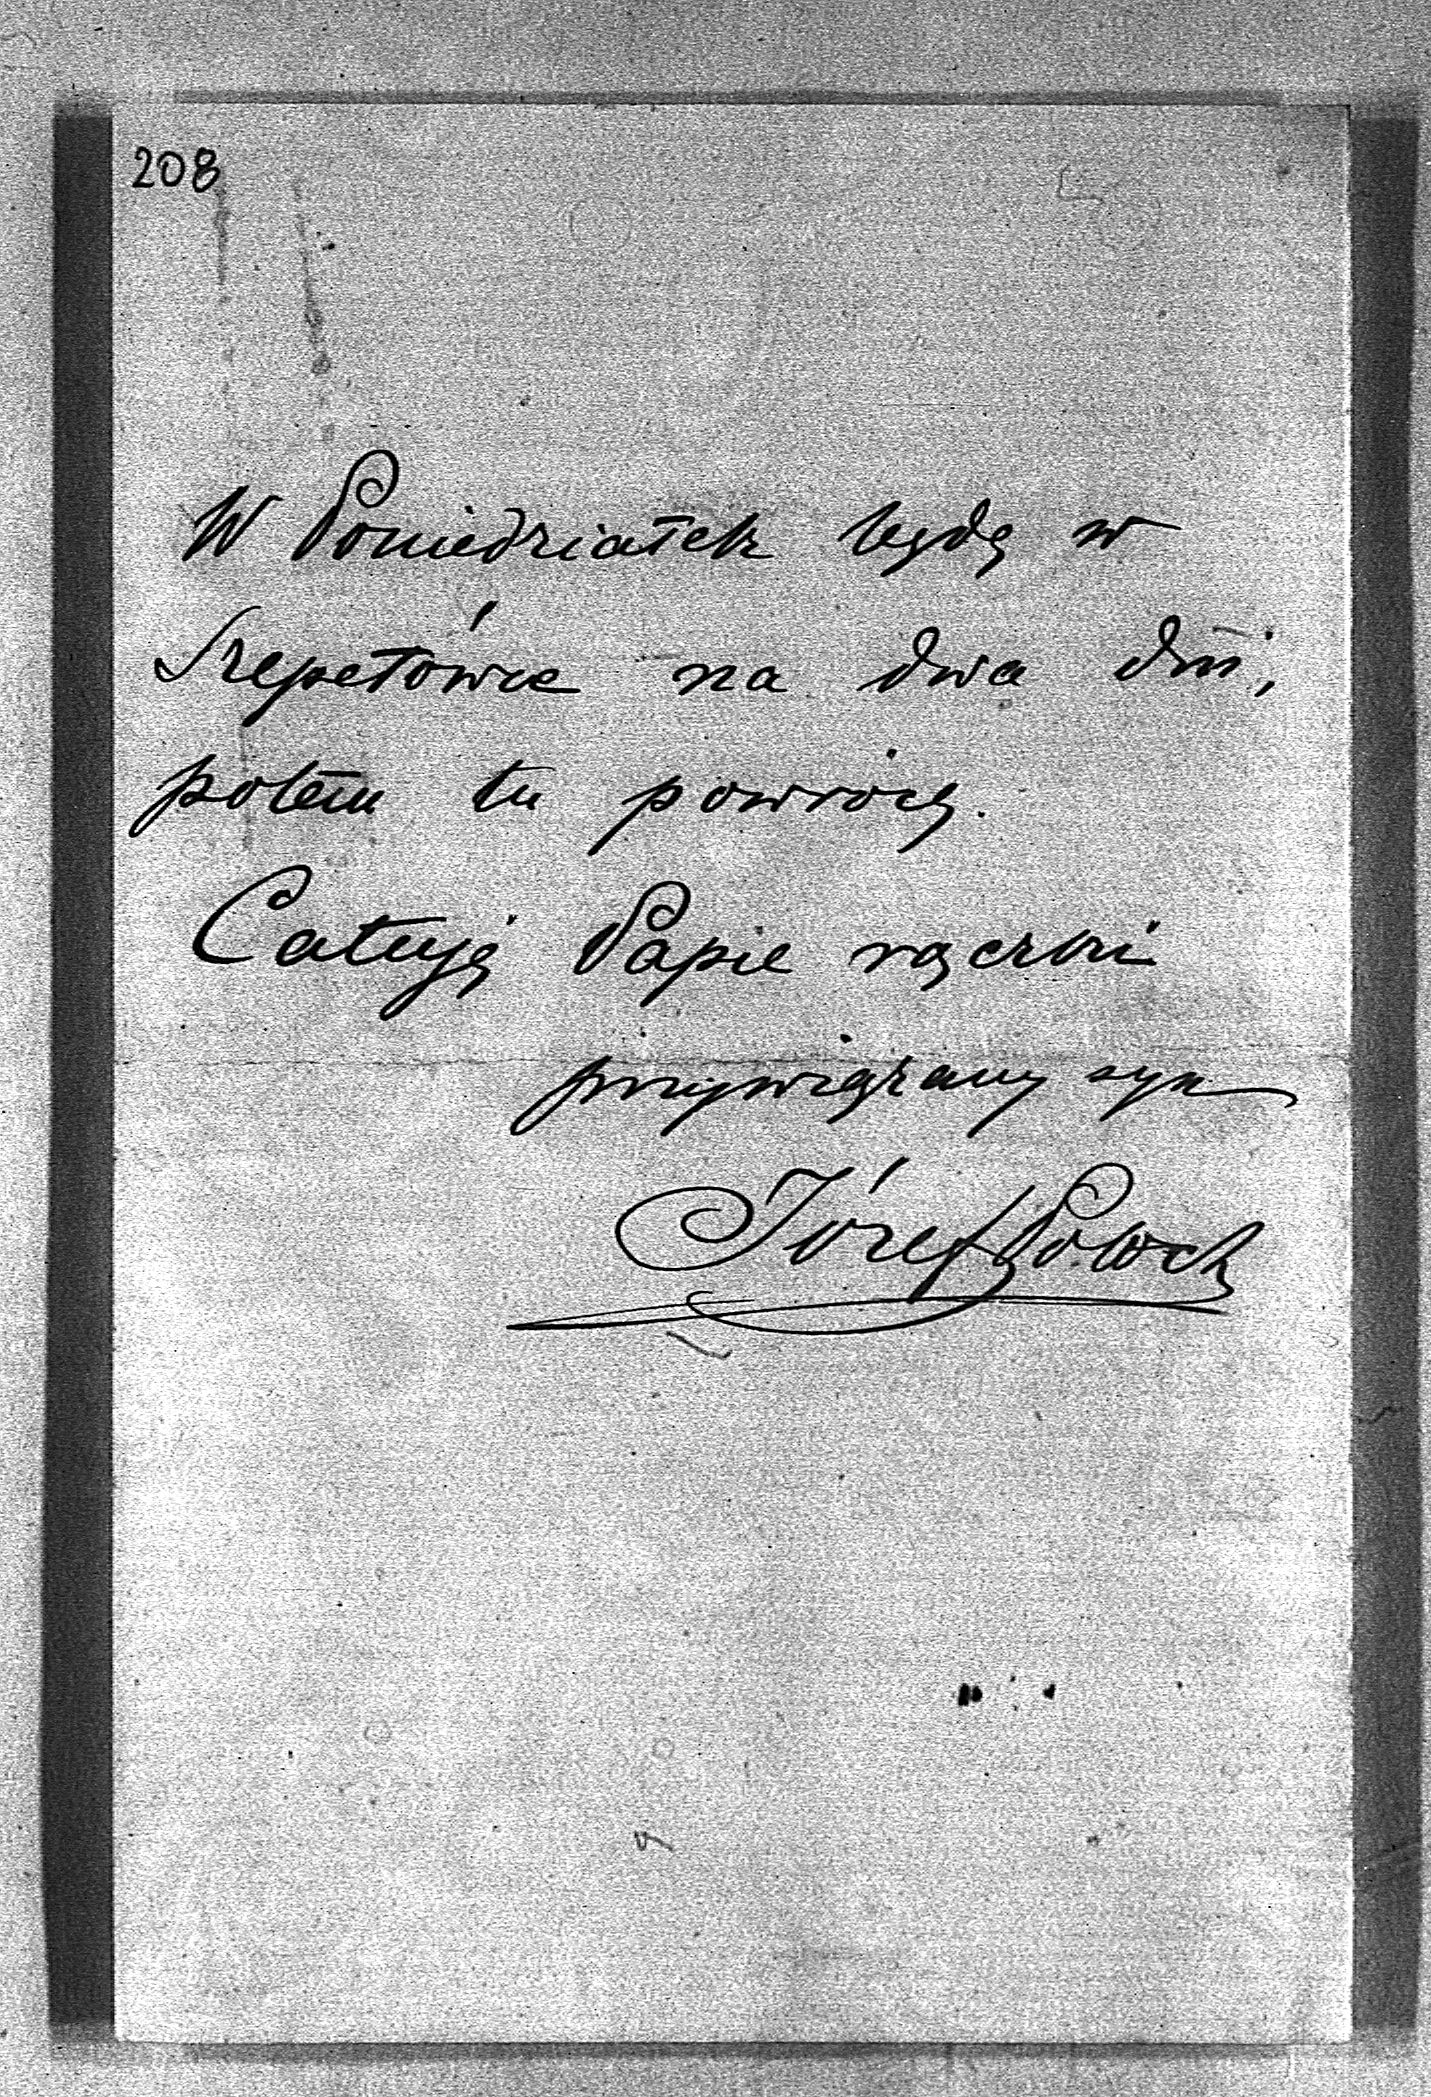 208
W Poniedziałek będę w
Szepetówce na dwa dni,
potem tu powrócę.
Całuję Papie rączki
przywiązany syn
Józef Potocki